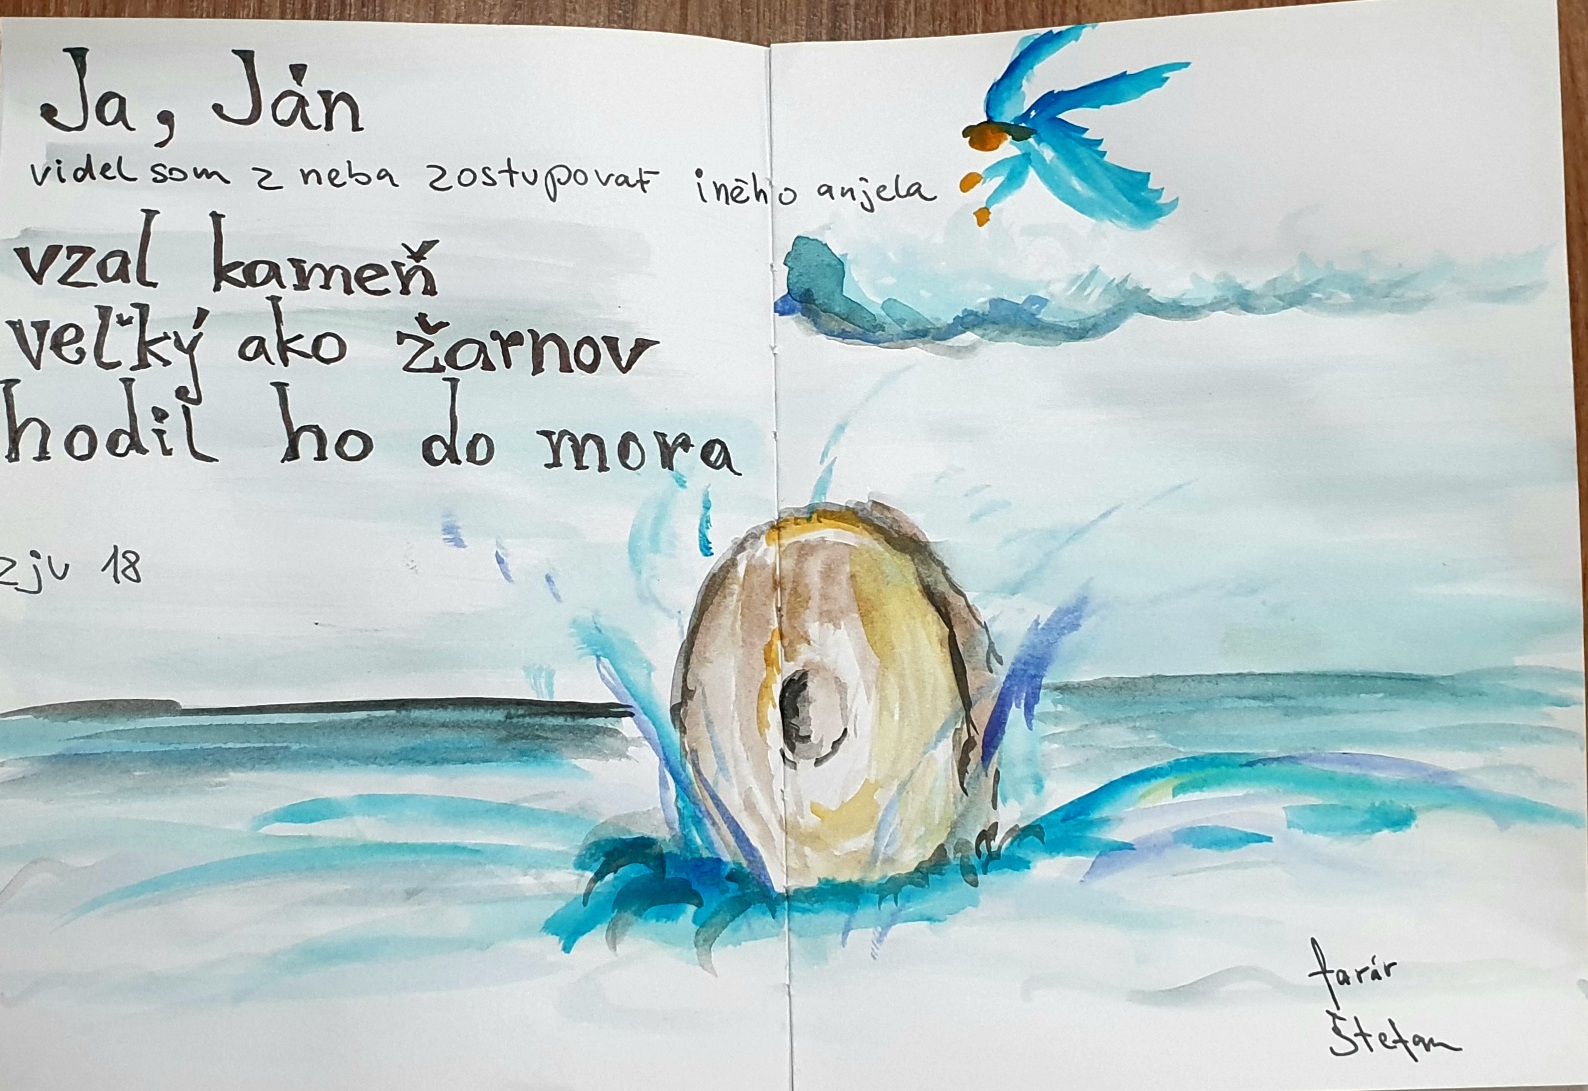 Ja, Ján
videl som z neba zostupovať iného anjela
vzal kameň
veľký ako žarnov
hodil ho do mora
zjv 18
farár
Štefan